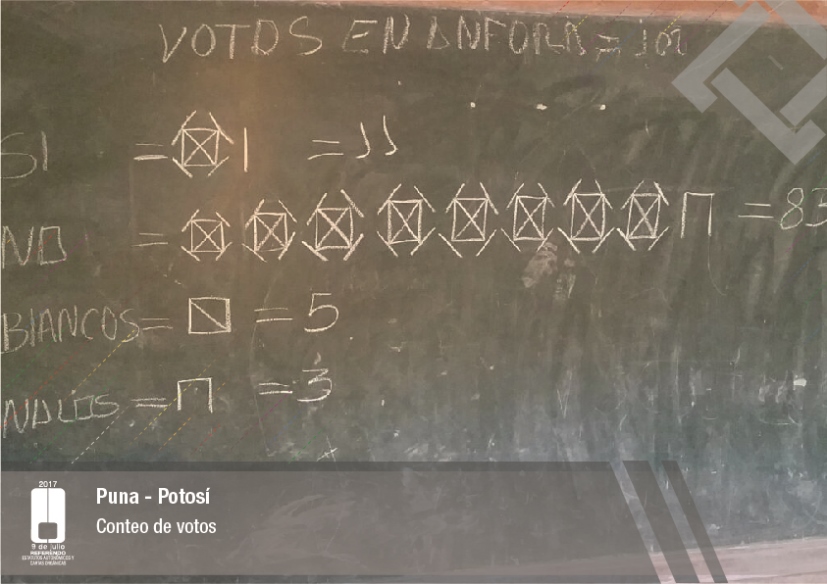 VOTOS EN ANFORA = 102
SI = = 11
NO = = 83
BLANCOS = = 5
NULOS = = 3
2017
9 de julio
REFERENDO
Puna - Potosí
Conteo de votos